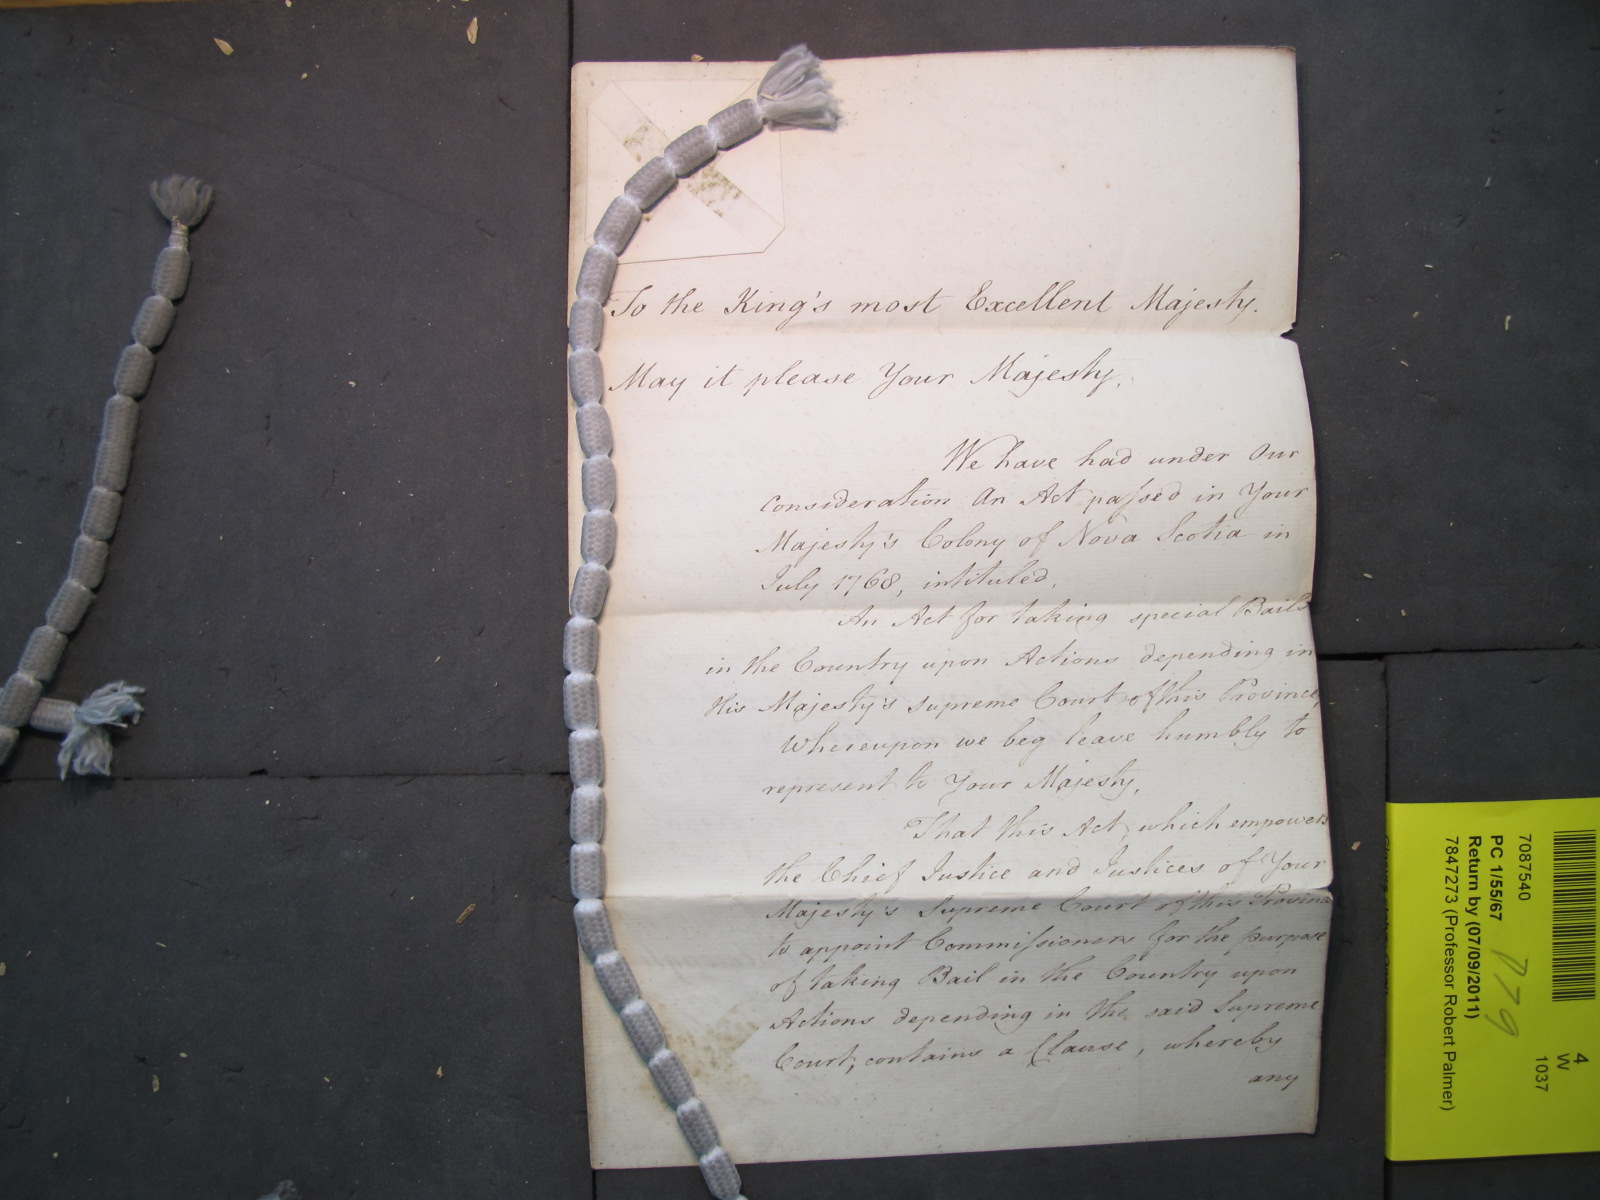 To the King's most Excellent Majesty.
May it please Your Majesty,
We have had under Our
consideration An Act passed in Your
Majesty's Colony of Nova Scotia in
July 1768, intituled,
An Act for taking special Bails
in the Country upon Actions depending in
His Majesty's Supreme Court of this Province,
Whereupon we beg leave humbly to
represent to Your Majesty,
That this Act, which empowers
the Chief Justice and Justices of Your
Majesty's Supreme Court of this Province
to appoint Commissioners for the purpose
of taking Bail in the Country upon
Actions depending in the said Supreme
Court, contains a Clause, whereby
any
7087540
PC 1/55/67
Return by (07/09/2011)
7847273 (Professor Robert Palmer)
779
4
W
1037